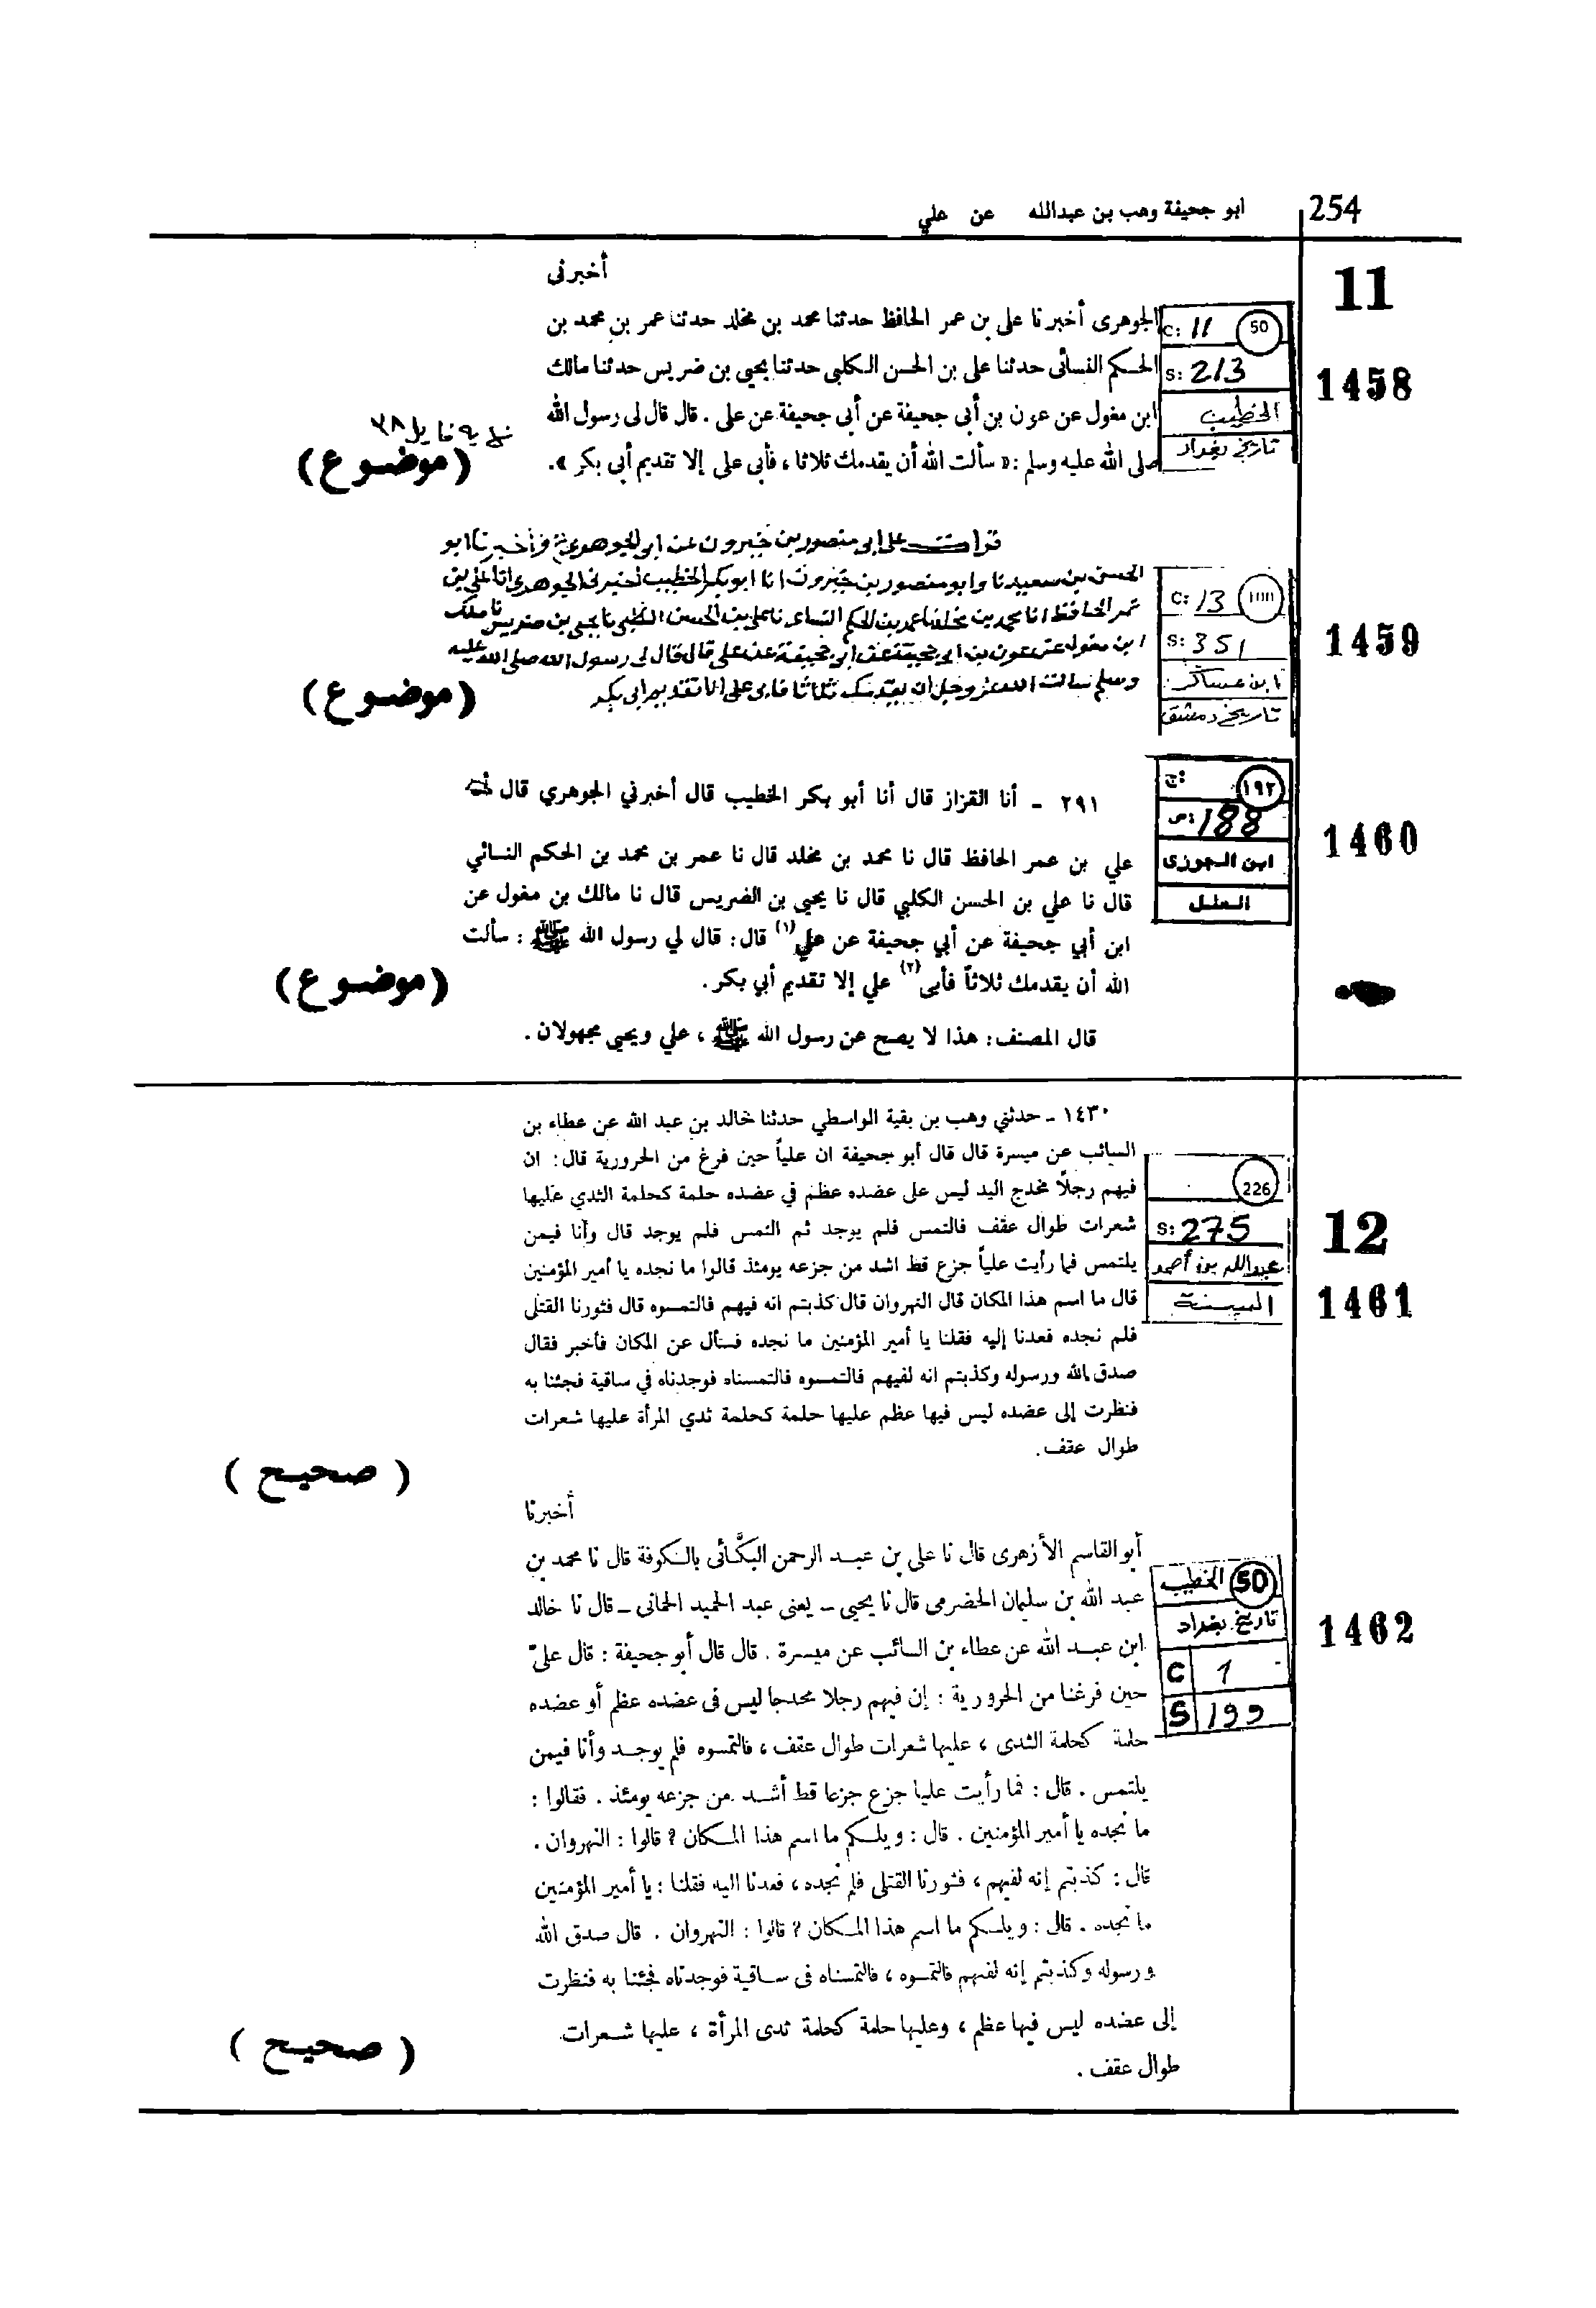 254
ابو جحيفة وهب بن عبدالله عن علي
11
أخبرنى
الجوهرى أخبرنا على بن عمر الحافظ حدثنا محمد بن مخلد حدثنا عمر بن محمد بن
الحكم النسائى حدثنا على بن الحسن الكلبى حدثنا يحيى بن ضريس حدثنا مالك
ابن مغول عن عون بن أبى جحيفة عن أبى جحيفة عن على . قال قال لى رسول الله
صلى الله عليه وسلم : « سألت الله أن يقدمك ثلاثا ، فأبى على إلا تقديم أبى بكر » .
(موضوع)
C: 11
50
S: 213
الخطيب
تاريخ بغداد
1458
قرأت على ابى منصور بن خيرون عن ابى الجوهري واخبرنا ابو
الحسن بن سعيد نا وابو منصور بن خيرون انا ابو بكر الخطيب اخبرنى الجوهرى انا على بن
عمر الحافظ انا محمد بن مخلد نا عمر بن محمد بن الحكم النسائى نا على بن الحسن الكلبى نا يحيى بن ضريس نا ملك
ابن مغول عن عون بن ابى جحيفة عن ابى جحيفة عن على قال قال لى رسول الله صلى الله عليه
وسلم سالت الله عز وجل ان يقدمك ثلاثا فابى على الا تقديم ابى بكر
(موضوع)
C: 13
S: 351
ابن عساكر
تاريخ دمشق
1459
٢٩١ - أنا القزاز قال أنا أبو بكر الخطيب قال أخبرني الجوهري قال أنا
علي بن عمر الحافظ قال نا محمد بن مخلد قال نا عمر بن محمد بن الحكم النسائي
قال نا علي بن الحسن الكلبي قال نا يحيى بن الضريس قال نا مالك بن مغول عن
ابن أبي جحيفة عن أبي جحيفة عن علي(١) قال: قال لي رسول الله ﷺ : سألت
الله أن يقدمك ثلاثاً فأبى(٢) علي إلا تقديم أبي بكر.
(موضوع)
قال المصنف: هذا لا يصح عن رسول الله ﷺ ، علي ويحيى مجهولان.
ج:
١٩٢
ص: 188
ابن الجوزى
العلل
1460
١٤٣٠ - حدثني وهب بن بقية الواسطي حدثنا خالد بن عبد الله عن عطاء بن
السائب عن ميسرة قال قال أبو جحيفة ان علياً حين فرغ من الحرورية قال: ان
فيهم رجلاً مخدج اليد ليس على عضده عظم في عضده حلمة كحلمة الثدي عليها
شعرات طوال عقف فالتمس فلم يوجد ثم التمس فلم يوجد قال وأنا فيمن
يلتمس فما رأيت علياً جزع قط اشد من جزعه يومئذ قالوا ما نجده يا أمير المؤمنين
قال ما اسم هذا المكان قال النهروان قال كذبتم انه فيهم فالتمسوه قال فثورنا القتلى
فلم نجده فعدنا إليه فقلنا يا أمير المؤمنين ما نجده فسأل عن المكان فأخبر فقال
صدق الله ورسوله وكذبتم انه لفيهم فالتمسوه فالتمسناه فوجدناه في ساقية فجئنا به
فنظرت إلى عضده ليس فيها عظم عليها حلمة كحلمة ثدي المرأة عليها شعرات
طوال عقف.
( صحيح )
226
S: 275
عبدالله بن أحمد
السنة
12
1461
أخبرنا
أبو القاسم الأزهرى قال نا على بن عبد الرحمن البكَّائى بالكوفة قال نا محمد بن
عبد الله بن سليمان الحضرمى قال نا يحيى ـ يعنى عبد الحميد الحمانى ـ قال نا خالد
ابن عبد الله عن عطاء بن السائب عن ميسرة . قال قال أبو جحيفة : قال علىّ
حين فرغنا من الحرورية : إن فيهم رجلا مخدجا ليس فى عضده عظم أو عضده
حلمة كحلمة الثدى ، عليها شعرات طوال عقف ، فالتمسوه فلم يوجد وأنا فيمن
يلتمس . قال : فما رأيت عليا جزع جزعا قط أشد من جزعه يومئذ . فقالوا :
ما نجده يا أمير المؤمنين . قال : ويلكم ما اسم هذا المكان ؟ قالوا : النهروان .
قال : كذبتم إنه لفيهم ، فثورنا القتلى فلم نجده ، فعدنا اليه فقلنا : يا أمير المؤمنين
ما نجده . قال : ويلكم ما اسم هذا المكان ؟ قالوا : النهروان . قال صدق الله
ورسوله وكذبتم إنه لفيهم فالتمسوه ، فالتمسناه فى ساقية فوجدناه فجئنا به فنظرت
إلى عضده ليس فيها عظم ، وعليها حلمة كحلمة ثدى المرأة ، عليها شعرات
طوال عقف .
( صحيح )
50
الخطيب
تاريخ بغداد
C 1
S 199
1462